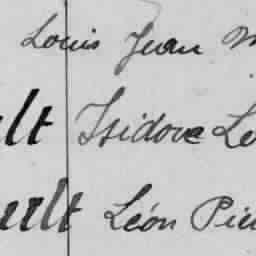 Louis Jean M
ult Isidore Le
ault Léon Pier